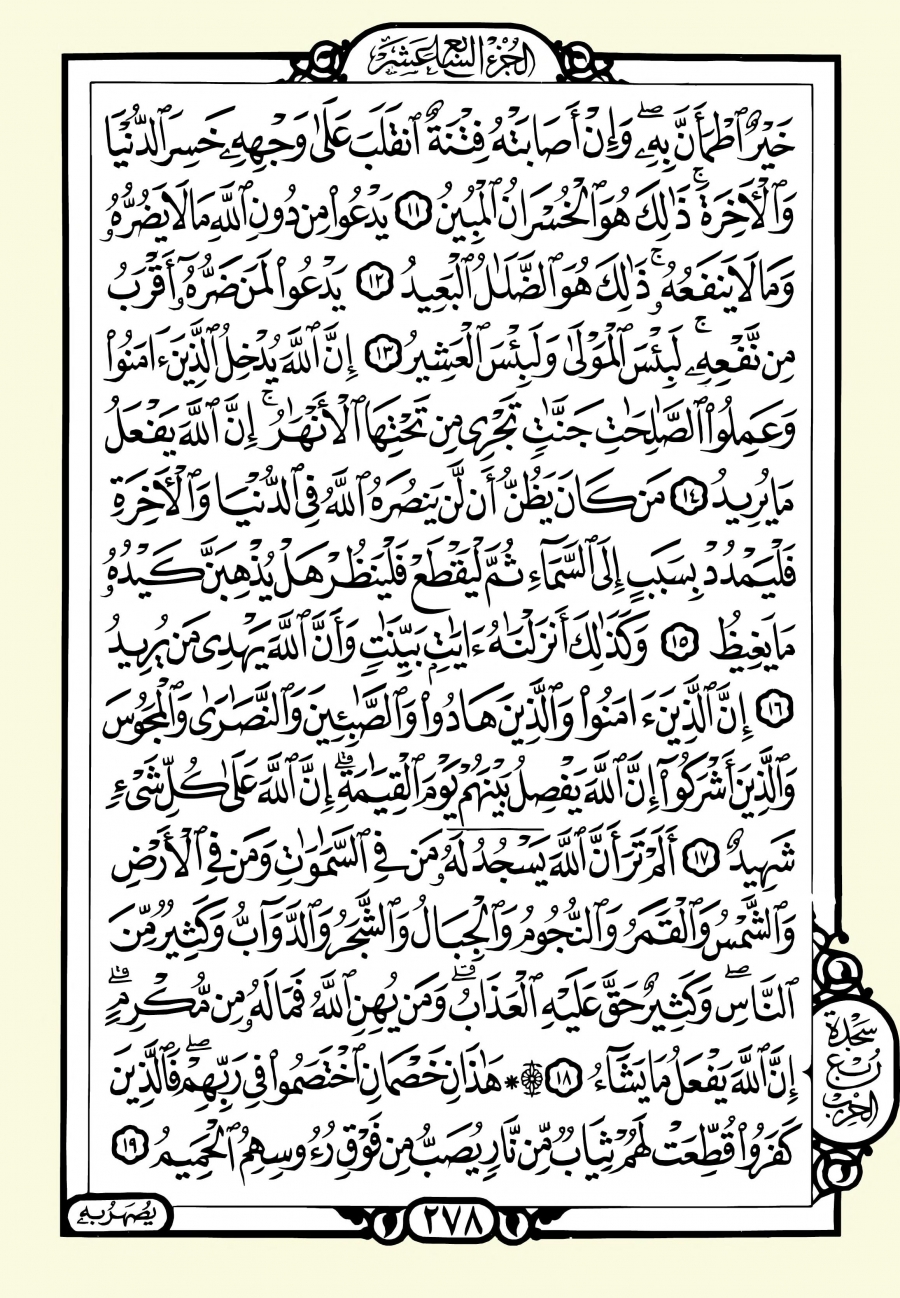 الجزء السابع عشر
خَيْرٌ ٱطْمَأَنَّ بِهِۦۖ وَإِنْ أَصَابَتْهُ فِتْنَةٌ ٱنقَلَبَ عَلَىٰ وَجْهِهِۦ خَسِرَ ٱلدُّنْيَا
وَٱلْـَٔاخِرَةَۚ ذَٰلِكَ هُوَ ٱلْخُسْرَانُ ٱلْمُبِينُ ١١ يَدْعُوا۟ مِن دُونِ ٱللَّهِ مَا لَا يَضُرُّهُۥ
وَمَا لَا يَنفَعُهُۥۚ ذَٰلِكَ هُوَ ٱلضَّلَٰلُ ٱلْبَعِيدُ ١٢ يَدْعُوا۟ لَمَن ضَرُّهُۥٓ أَقْرَبُ
مِن نَّفْعِهِۦۚ لَبِئْسَ ٱلْمَوْلَىٰ وَلَبِئْسَ ٱلْعَشِيرُ ١٣ إِنَّ ٱللَّهَ يُدْخِلُ ٱلَّذِينَ ءَامَنُوا۟
وَعَمِلُوا۟ ٱلصَّٰلِحَٰتِ جَنَّٰتٍ تَجْرِى مِن تَحْتِهَا ٱلْأَنْهَٰرُۚ إِنَّ ٱللَّهَ يَفْعَلُ
مَا يُرِيدُ ١٤ مَن كَانَ يَظُنُّ أَن لَّن يَنصُرَهُ ٱللَّهُ فِى ٱلدُّنْيَا وَٱلْـَٔاخِرَةِ
فَلْيَمْدُدْ بِسَبَبٍ إِلَى ٱلسَّمَآءِ ثُمَّ لْيَقْطَعْ فَلْيَنظُرْ هَلْ يُذْهِبَنَّ كَيْدُهُۥ
مَا يَغِيظُ ١٥ وَكَذَٰلِكَ أَنزَلْنَٰهُ ءَايَٰتٍۭ بَيِّنَٰتٍ وَأَنَّ ٱللَّهَ يَهْدِى مَن يُرِيدُ
١٦ إِنَّ ٱلَّذِينَ ءَامَنُوا۟ وَٱلَّذِينَ هَادُوا۟ وَٱلصَّٰبِـِٔينَ وَٱلنَّصَٰرَىٰ وَٱلْمَجُوسَ
وَٱلَّذِينَ أَشْرَكُوٓا۟ إِنَّ ٱللَّهَ يَفْصِلُ بَيْنَهُمْ يَوْمَ ٱلْقِيَٰمَةِۚ إِنَّ ٱللَّهَ عَلَىٰ كُلِّ شَىْءٍ
شَهِيدٌ ١٧ أَلَمْ تَرَ أَنَّ ٱللَّهَ يَسْجُدُ لَهُۥ مَن فِى ٱلسَّمَٰوَٰتِ وَمَن فِى ٱلْأَرْضِ
وَٱلشَّمْسُ وَٱلْقَمَرُ وَٱلنُّجُومُ وَٱلْجِبَالُ وَٱلشَّجَرُ وَٱلدَّوَآبُّ وَكَثِيرٌ مِّنَ
ٱلنَّاسِۖ وَكَثِيرٌ حَقَّ عَلَيْهِ ٱلْعَذَابُۗ وَمَن يُهِنِ ٱللَّهُ فَمَا لَهُۥ مِن مُّكْرِمٍۚ
إِنَّ ٱللَّهَ يَفْعَلُ مَا يَشَآءُ ۩ ١٨ * هَٰذَانِ خَصْمَانِ ٱخْتَصَمُوا۟ فِى رَبِّهِمْۖ فَٱلَّذِينَ
كَفَرُوا۟ قُطِّعَتْ لَهُمْ ثِيَابٌ مِّن نَّارٍ يُصَبُّ مِن فَوْقِ رُءُوسِهِمُ ٱلْحَمِيمُ ١٩
سجدة
ربع
الحزب
يُصْهَرُ بِهِۦ
٢٧٨